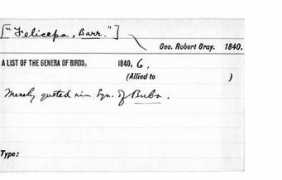 ["Feliceps, Barr."]
Geo. Robert Gray. 1840.
A LIST OF THE GENERA OF BIRDS, 1840, 6,
(Allied to )
Merely quoted in Syn. of Bubo.
Type: